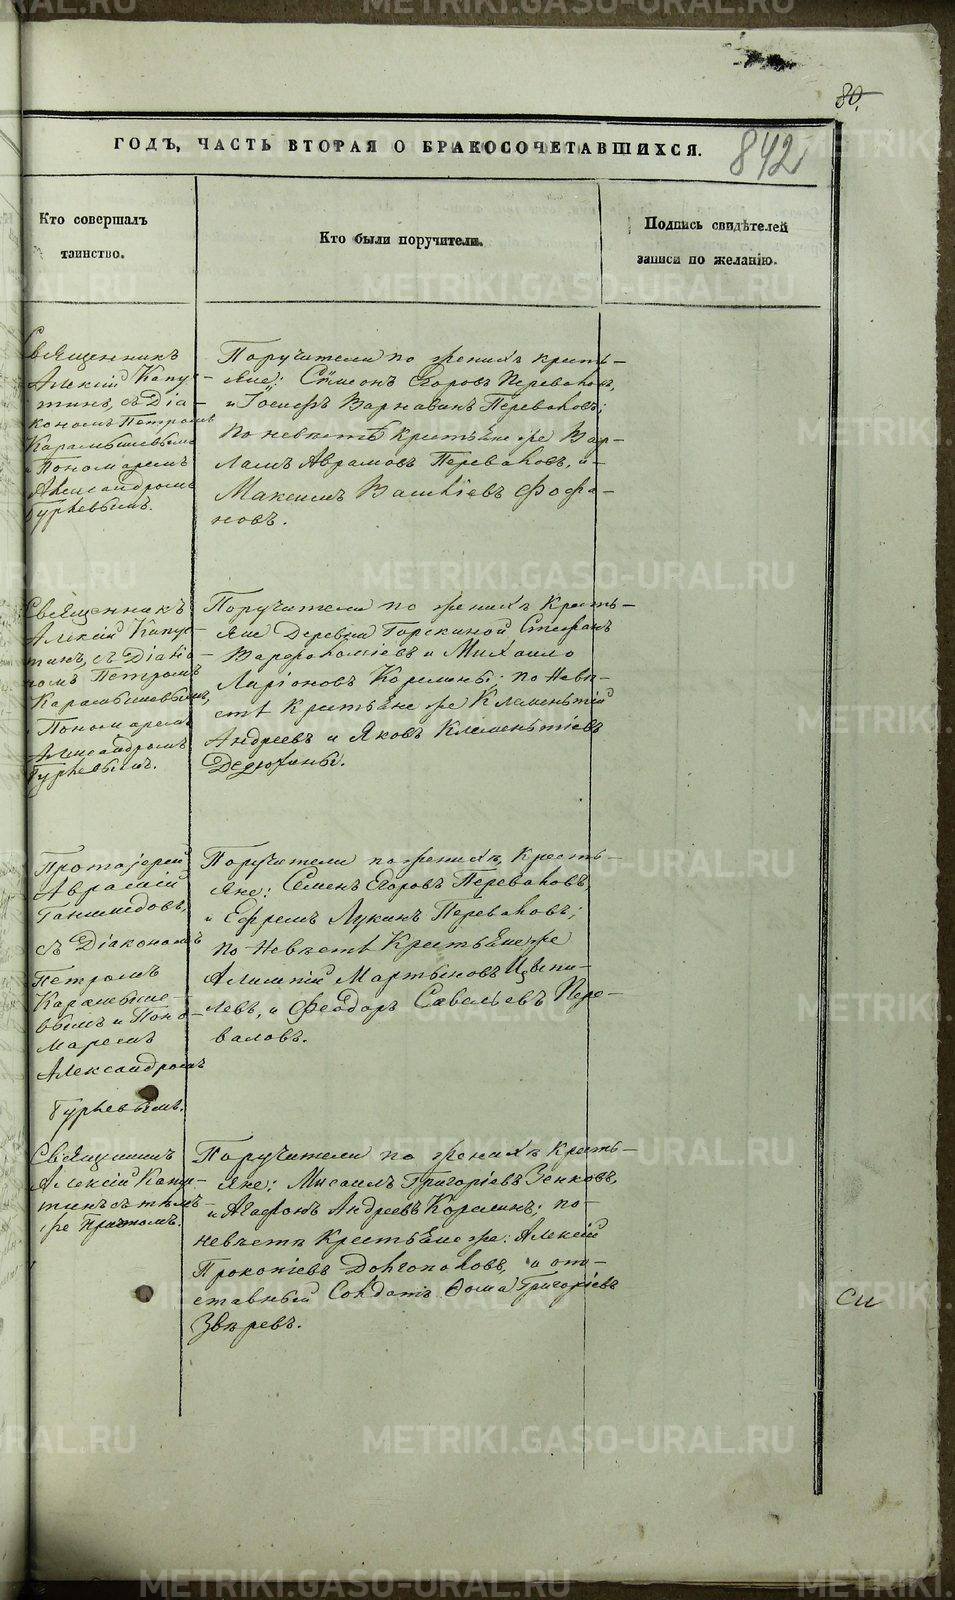 80.
ГОДЪ, ЧАСТЬ ВТОРАЯ О БРАКОСОЧЕТАВШИХСЯ.
842
Кто совершалъ
таинство.
Кто были поручители.
Подпись свидѣтелей
записи по желанію.
Священникъ
Алексій Капус-
тинъ, съ Діа-
кономъ Петромъ
Карамышевымъ
и Пономаремъ
Александромъ
Гурьевымъ.
Поручители по женихѣ кресть-
яне: Симеонъ Егоровъ Переваловъ,
и Іосифъ Варнавинъ Переваловъ;
по невѣстѣ Крестьяне же Вар-
ламъ Аврамовъ Переваловъ, и
Максимъ Васильевъ Фофа-
новъ.
Священникъ
Алексій Капус-
тинъ, съ Діако-
номъ Петромъ
Карамышевымъ,
Пономаремъ
Александромъ
Гурьевымъ.
Поручители по женихѣ Кресть-
яне Деревни Горскиной Стефанъ
Варфоломіевъ и Михаило
Ларіоновъ Корелины; по невѣ-
стѣ Крестьяне же Клементій
Андреевъ и Яковъ Клементіевъ
Дедюхины.
Протоіерей
Аврамій
Ганимедовъ,
съ Діакономъ
Петромъ
Карамыше-
вымъ и Поно-
маремъ
Александромъ
Гурьевымъ.
Поручители по женихѣ, Кресть-
яне: Семенъ Егоровъ Переваловъ,
и Ефремъ Лукинъ Переваловъ;
по невѣстѣ Крестьяне же
Алимпій Мартыновъ Цѣпи-
левъ, и Феодоръ Савельевъ Пере-
валовъ.
Священникъ
Алексій Капус-
тинъ съ тѣмъ-
же Причтомъ.
Поручители по женихѣ Кресть-
яне: Мисаилъ Григоріевъ Зенковъ,
и Агафонъ Андреевъ Корелинъ; по
невѣстѣ Крестьяне же: Алексій
Прокопіевъ Долгополовъ, и от-
ставный Солдатъ Фома Григоріевъ
Звѣревъ.
METRIKI.GASO-URAL.RU